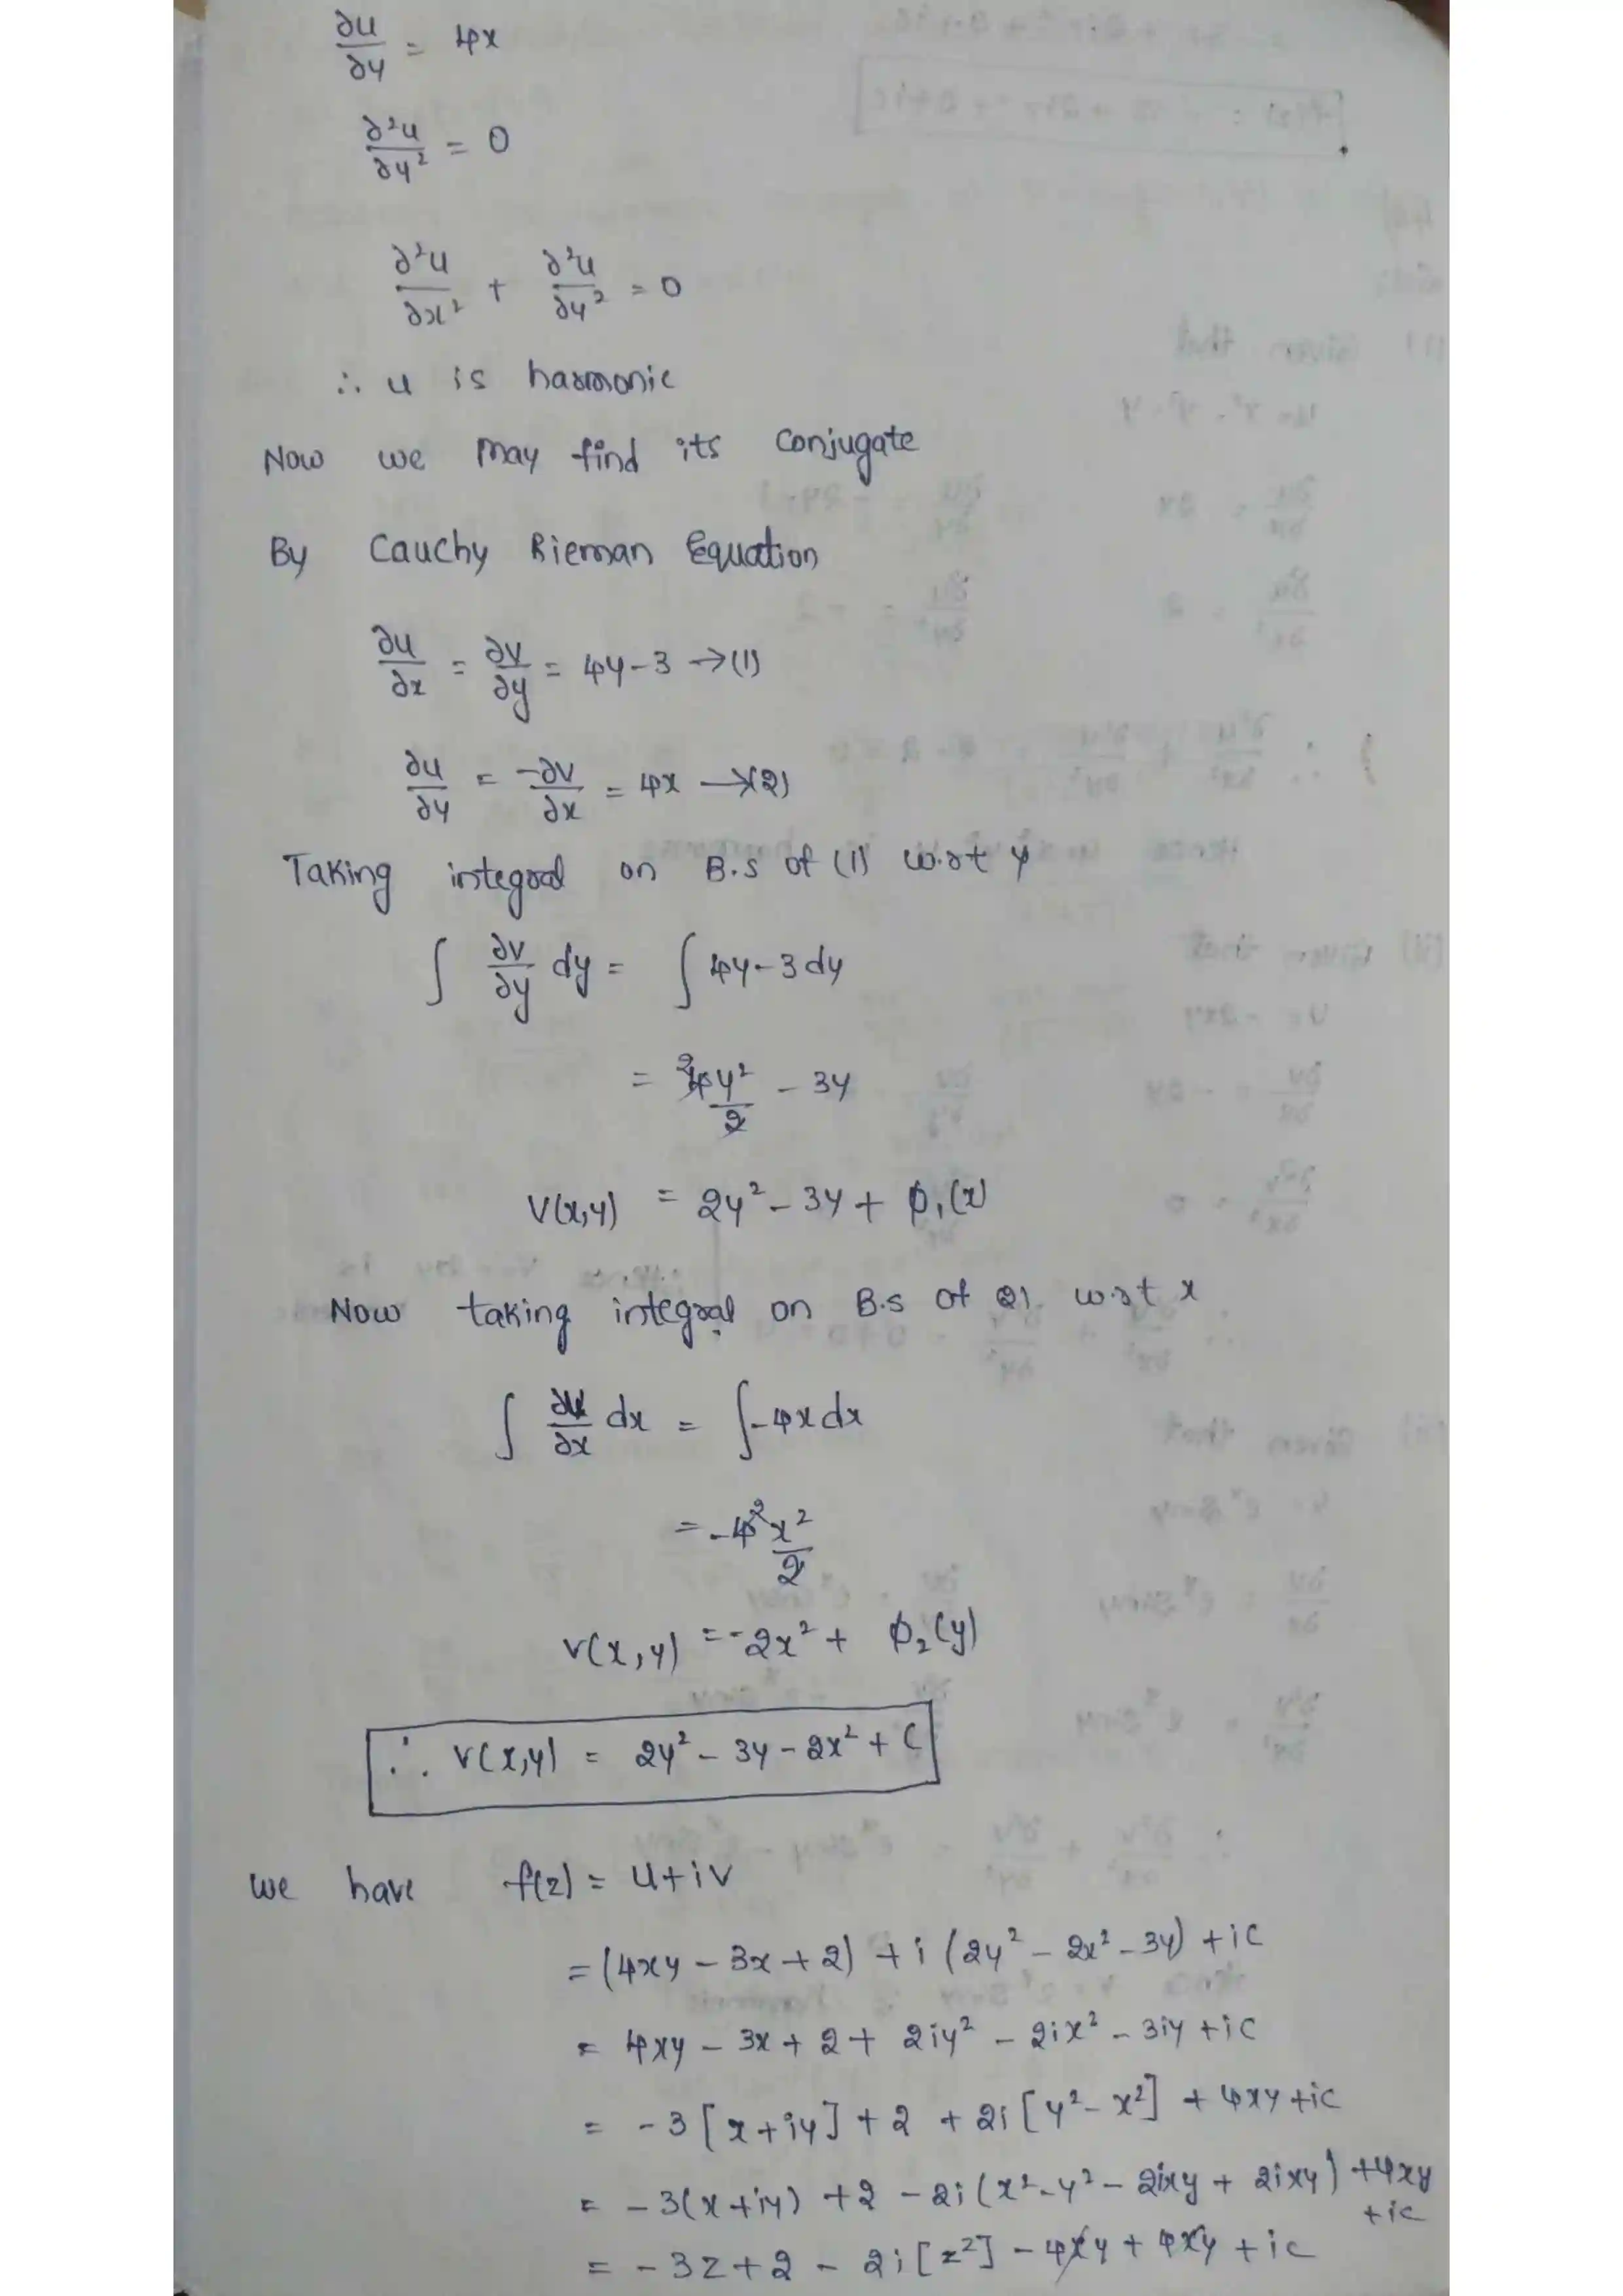 ∂u/∂y = 4x
∂²u/∂y² = 0
∂²u/∂x² + ∂²u/∂y² = 0
∴ u is harmonic
Now we may find its conjugate
By Cauchy Rieman Equation
∂u/∂x = ∂v/∂y = 4y-3 →(1)
∂u/∂y = -∂v/∂x = 4x →(2)
Taking integral on B.S of (1) w.r.t y
∫ ∂v/∂y dy = ∫ 4y-3 dy
= 4y²/2 - 3y
v(x,y) = 2y² - 3y + ϕ₁(x)
Now taking integral on B.S of 2) w.r.t x
∫ ∂v/∂x dx = ∫-4x dx
= -4x²/2
v(x,y) = -2x² + ϕ₂(y)
∴ v(x,y) = 2y² - 3y - 2x² + c
we have f(z) = u+iv
= (4xy - 3x + 2) + i (2y² - 2x² - 3y) + ic
= 4xy - 3x + 2 + 2iy² - 2ix² - 3iy + ic
= -3[x+iy] + 2 + 2i[y² - x²] + 4xy + ic
= -3(x+iy) + 2 - 2i(x² - y² - 2ixy + 2ixy) + 4xy + ic
= -3z + 2 - 2i[z²] - 4xy + 4xy + ic